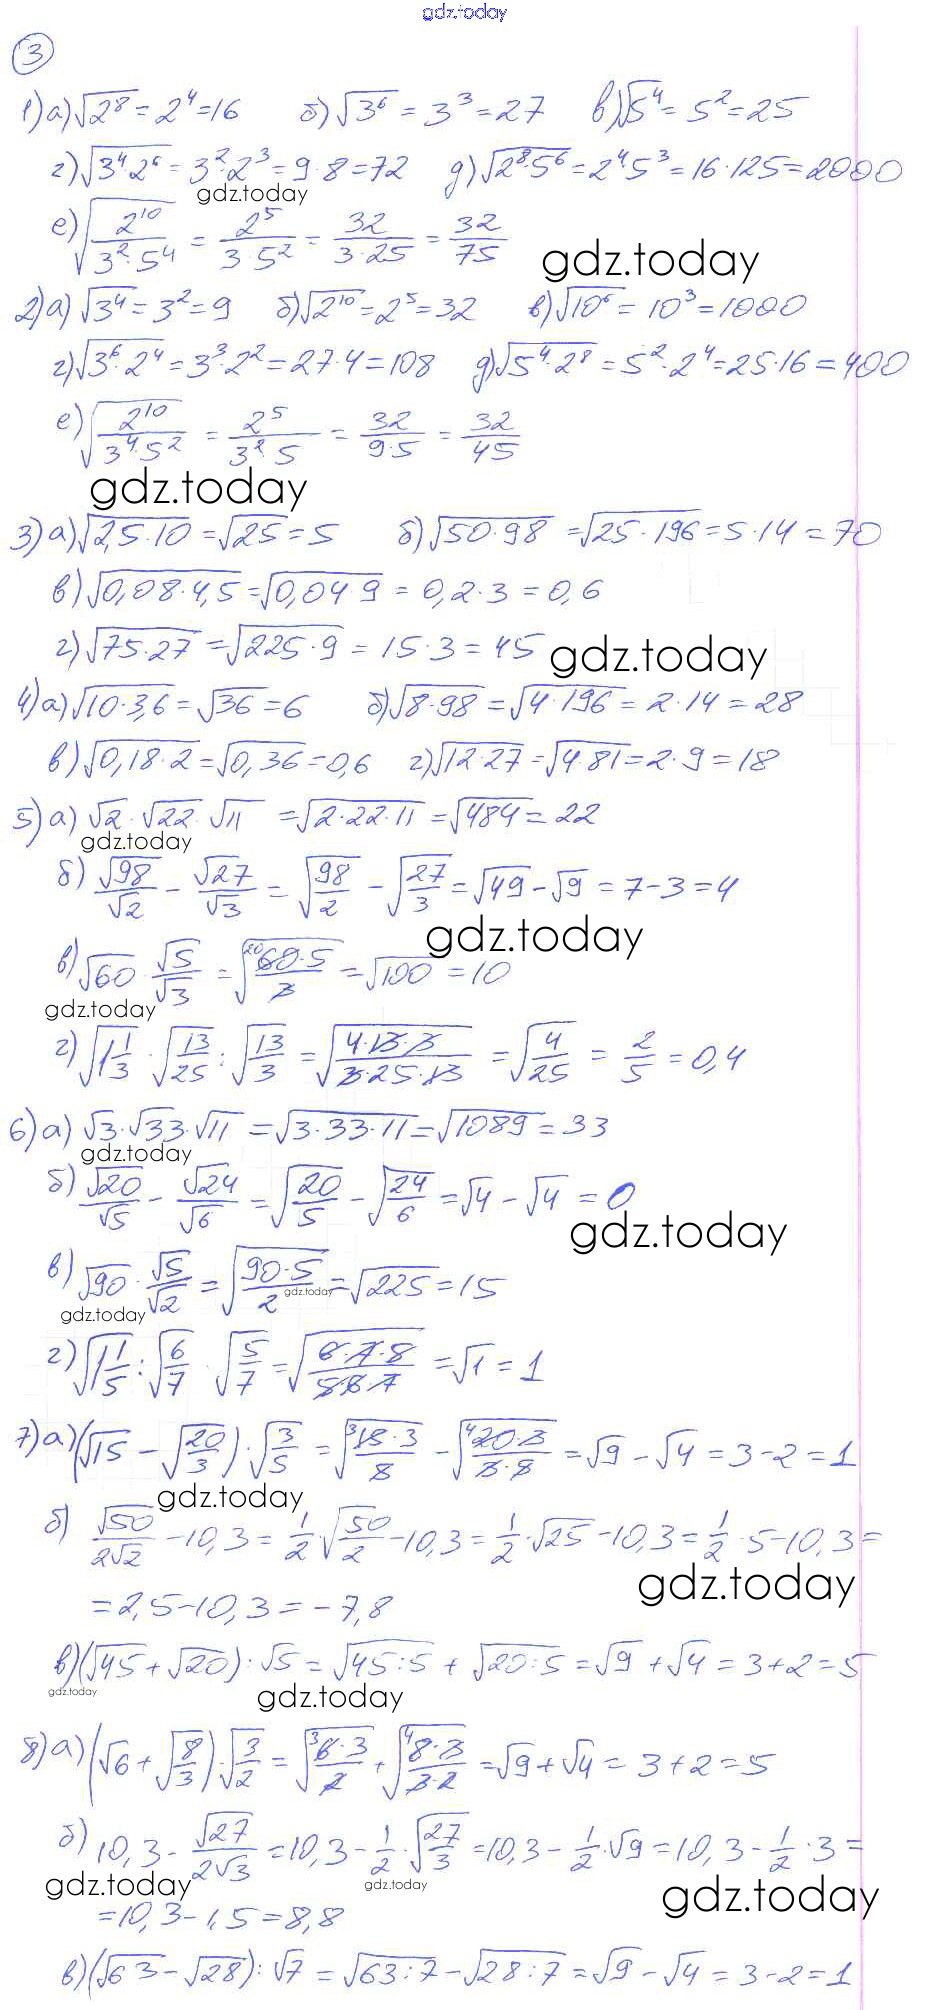 gdz.today
3
1) а) √2⁸ = 2⁴ = 16 б) √3⁶ = 3³ = 27 в) √5⁴ = 5² = 25
г) √3⁴·2⁶ = 3²·2³ = 9·8 = 72 д) √2⁸·5⁶ = 2⁴·5³ = 16·125 = 2000
gdz.today
е) √(2¹⁰/(3²·5⁴)) = 2⁵/(3·5²) = 32/(3·25) = 32/75
gdz.today
2) а) √3⁴ = 3² = 9 б) √2¹⁰ = 2⁵ = 32 в) √10⁶ = 10³ = 1000
г) √3⁶·2⁴ = 3³·2² = 27·4 = 108 д) √5⁴·2⁸ = 5²·2⁴ = 25·16 = 400
е) √(2¹⁰/(3⁴·5²)) = 2⁵/(3²·5) = 32/(9·5) = 32/45
gdz.today
3) а) √2,5·10 = √25 = 5 б) √50·98 = √25·196 = 5·14 = 70
в) √0,08·4,5 = √0,04·9 = 0,2·3 = 0,6
г) √75·27 = √225·9 = 15·3 = 45
gdz.today
4) а) √10·3,6 = √36 = 6 б) √8·98 = √4·196 = 2·14 = 28
в) √0,18·2 = √0,36 = 0,6 г) √12·27 = √4·81 = 2·9 = 18
5) а) √2·√22·√11 = √2·22·11 = √484 = 22
gdz.today
б) √98/√2 − √27/√3 = √(98/2) − √(27/3) = √49 − √9 = 7 − 3 = 4
gdz.today
в) √60·√5/√3 = √(²⁰60·5/3) = √100 = 10
gdz.today
г) √(1 1/3)·√(13/25) : √(13/3) = √(4·13·3/(3·25·13)) = √(4/25) = 2/5 = 0,4
6) а) √3·√33·√11 = √3·33·11 = √1089 = 33
gdz.today
б) √20/√5 − √24/√6 = √(20/5) − √(24/6) = √4 − √4 = 0
gdz.today
в) √90·√5/√2 = √(90·5/2) = √225 = 15
gdz.today
gdz.today
г) √(1 1/5) : √(6/7)·√(5/7) = √(6·7·8/(5·6·7)) = √1 = 1
7) а) (√15 − √(20/3))·√(3/5) = √(³15·3/5) − √(⁴20·3/(3·5)) = √9 − √4 = 3 − 2 = 1
gdz.today
б) √50/2√2 − 10,3 = 1/2·√(50/2) − 10,3 = 1/2·√25 − 10,3 = 1/2·5 − 10,3 =
gdz.today
= 2,5 − 10,3 = −7,8
в) (√45 + √20) : √5 = √45:5 + √20:5 = √9 + √4 = 3 + 2 = 5
gdz.today
gdz.today
8) а) (√6 + √(8/3))·√(3/2) = √(³6·3/2) + √(⁴8·3/(3·2)) = √9 + √4 = 3 + 2 = 5
б) 10,3 − √27/2√3 = 10,3 − 1/2·√(27/3) = 10,3 − 1/2·√9 = 10,3 − 1/2·3 =
gdz.today
gdz.today
gdz.today
= 10,3 − 1,5 = 8,8
в) (√63 − √28) : √7 = √63:7 − √28:7 = √9 − √4 = 3 − 2 = 1